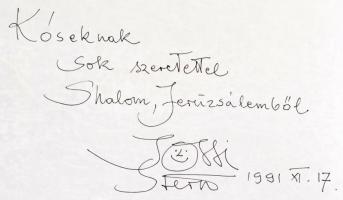 Kóseknak
sok szeretettel
Shalom, Jeruzsálemből
Jossi
Stern 1991 XI. 17.